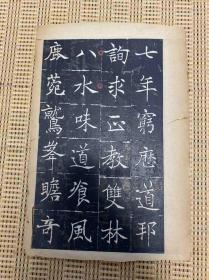 七年窮歷道邦
詢求正教雙林
八水味道飡風
鹿菀鷲峯瞻奇